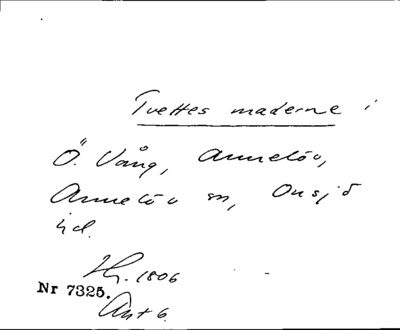 Tvettes maderne i
Ö. Vång, Annelöv,
Annelöv sn, Onsjö
hd.
Hg. 1806
Nr 7325.
Ant 6.